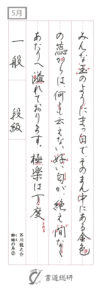 5月
みんな玉のようにまっ白でそのまん中にある金色
の蕊からは何とも云えない好い匂が絶え間なく
あたりへ溢れております。極楽は丁度
一般 段級
芥川龍之介
蜘蛛の糸②
書道総研